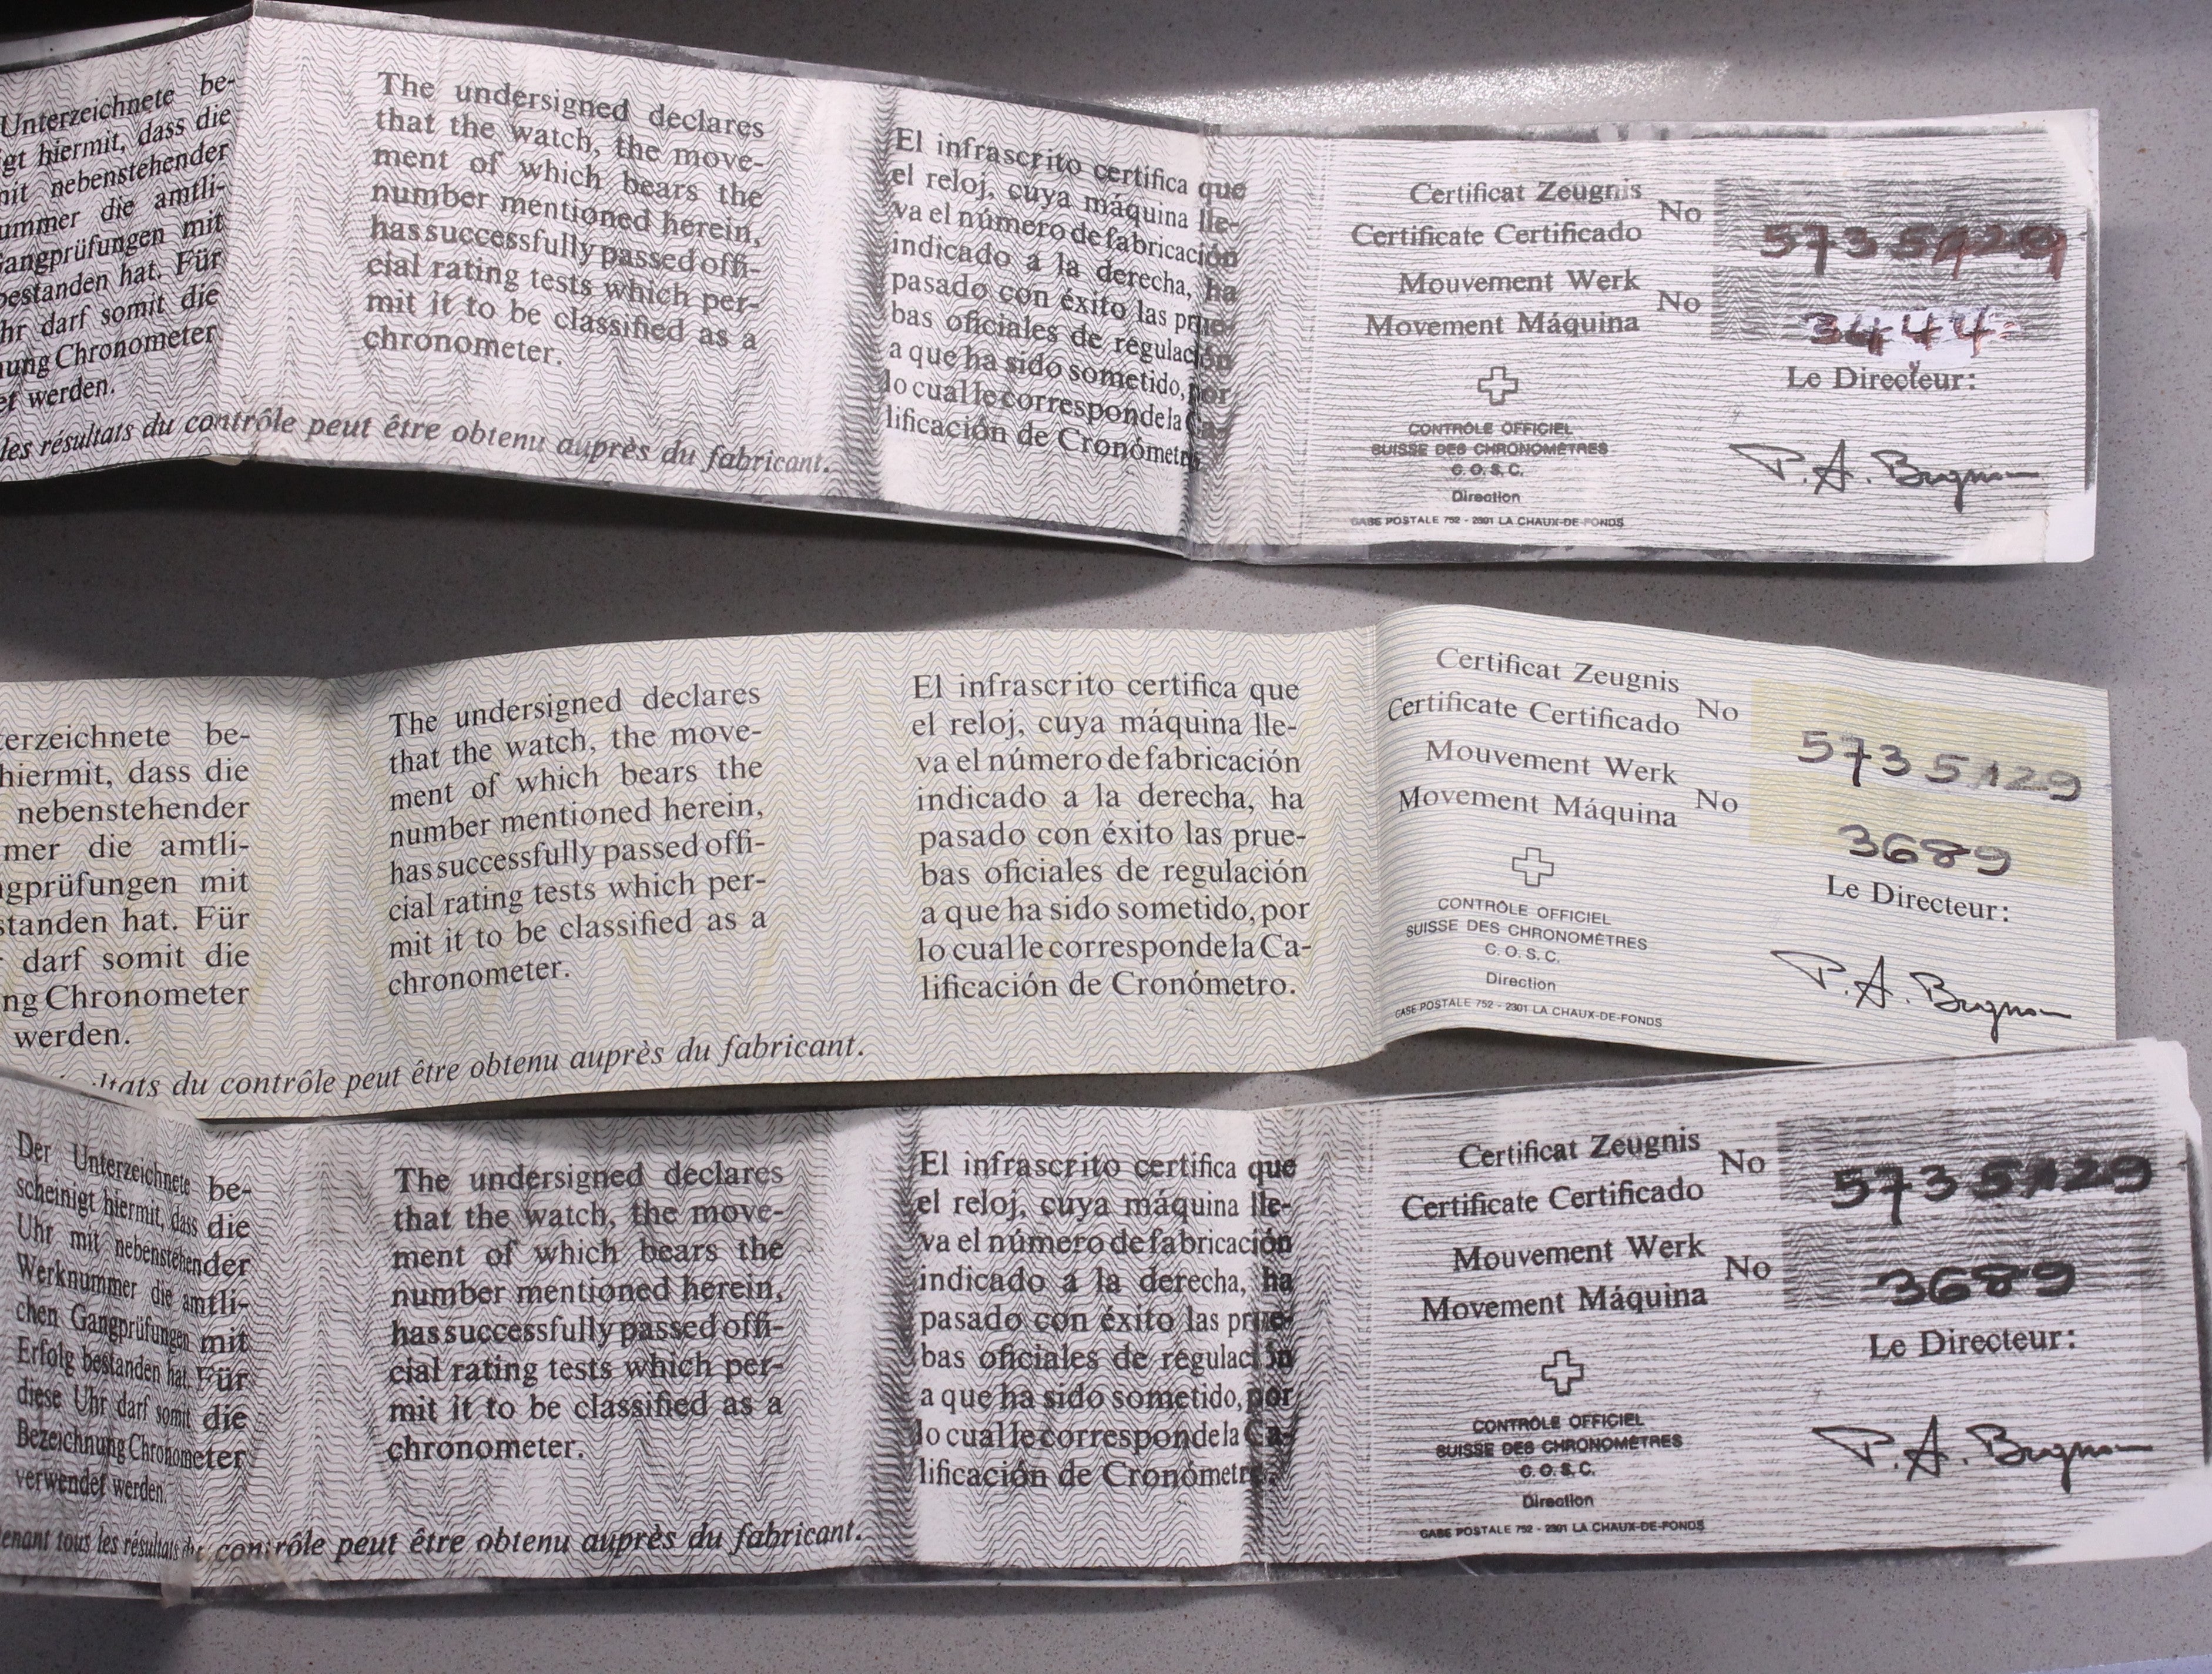 Unterzeichnete be-
gt hiermit, dass die
mit nebenstehender
ummer die amtli-
angprüfungen mit
bestanden hat. Für
hr darf somit die
ung Chronometer
et werden.
The undersigned declares
that the watch, the move-
ment of which bears the
number mentioned herein,
has successfully passed offi-
cial rating tests which per-
mit it to be classified as a
chronometer.
les résultats du contrôle peut être obtenu auprès du fabricant.
El infrascrito certifica que
el reloj, cuya máquina lle-
va el número de fabricación
indicado a la derecha, ha
pasado con éxito las prue-
bas oficiales de regulación
a que ha sido sometido, por
lo cual le corresponde la Ca-
lificación de Cronómetro
Certificat Zeugnis
Certificate Certificado
No
5735129
Mouvement Werk
Movement Máquina
No
3444
Le Directeur:
CONTRÔLE OFFICIEL
SUISSE DES CHRONOMÈTRES
C.O.S.C.
Direction
CASE POSTALE 752 - 2301 LA CHAUX-DE-FONDS
P. A. Brugnon
terzeichnete be-
hiermit, dass die
nebenstehender
mer die amtli-
ngprüfungen mit
standen hat. Für
darf somit die
ng Chronometer
werden.
The undersigned declares
that the watch, the move-
ment of which bears the
number mentioned herein,
has successfully passed offi-
cial rating tests which per-
mit it to be classified as a
chronometer.
ultats du contrôle peut être obtenu auprès du fabricant.
El infrascrito certifica que
el reloj, cuya máquina lle-
va el número de fabricación
indicado a la derecha, ha
pasado con éxito las prue-
bas oficiales de regulación
a que ha sido sometido, por
lo cual le corresponde la Ca-
lificación de Cronómetro.
Certificat Zeugnis
Certificate Certificado
No
5735129
Mouvement Werk
Movement Máquina
No
3689
Le Directeur:
CONTRÔLE OFFICIEL
SUISSE DES CHRONOMÈTRES
C.O.S.C.
Direction
CASE POSTALE 752 - 2301 LA CHAUX-DE-FONDS
P. A. Brugnon
Der Unterzeichnete be-
scheinigt hiermit, dass die
Uhr mit nebenstehender
Werknummer die amtli-
chen Gangprüfungen mit
Erfolg bestanden hat. Für
diese Uhr darf somit die
Bezeichnung Chronometer
verwendet werden.
The undersigned declares
that the watch, the move-
ment of which bears the
number mentioned herein,
has successfully passed offi-
cial rating tests which per-
mit it to be classified as a
chronometer.
enant tous les résultats du contrôle peut être obtenu auprès du fabricant.
El infrascrito certifica que
el reloj, cuya máquina lle-
va el número de fabricación
indicado a la derecha, ha
pasado con éxito las prue-
bas oficiales de regulación
a que ha sido sometido, por
lo cual le corresponde la Ca-
lificación de Cronómetro.
Certificat Zeugnis
Certificate Certificado
No
5735129
Mouvement Werk
Movement Máquina
No
3689
Le Directeur:
CONTRÔLE OFFICIEL
SUISSE DES CHRONOMÈTRES
C.O.S.C.
Direction
CASE POSTALE 752 - 2301 LA CHAUX-DE-FONDS
P. A. Brugnon